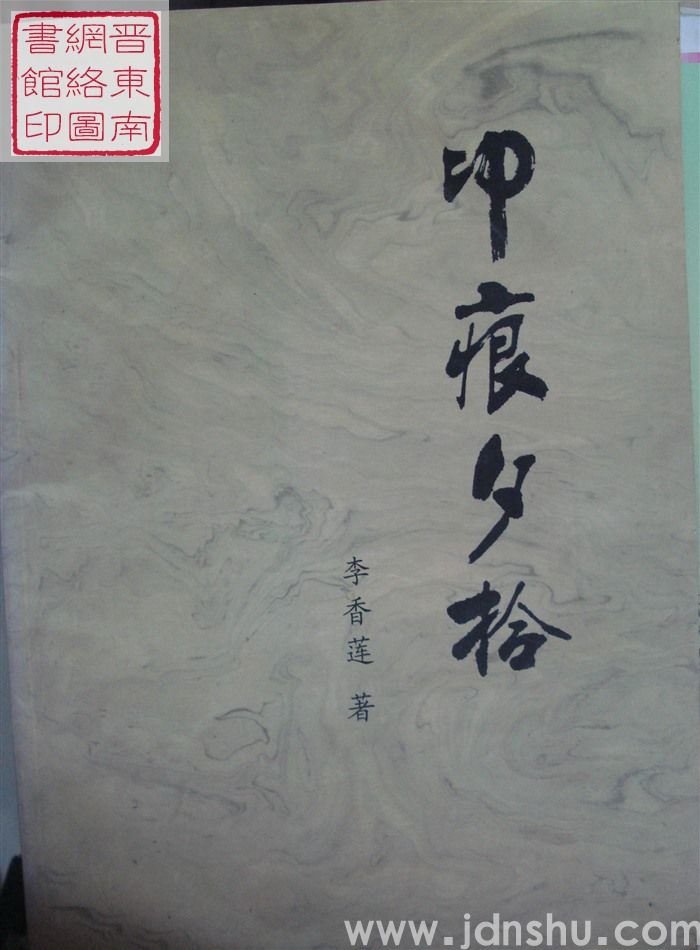 晋東南
網絡圖
書館印
印痕夕拾
李香莲 著
www.jdnshu.com